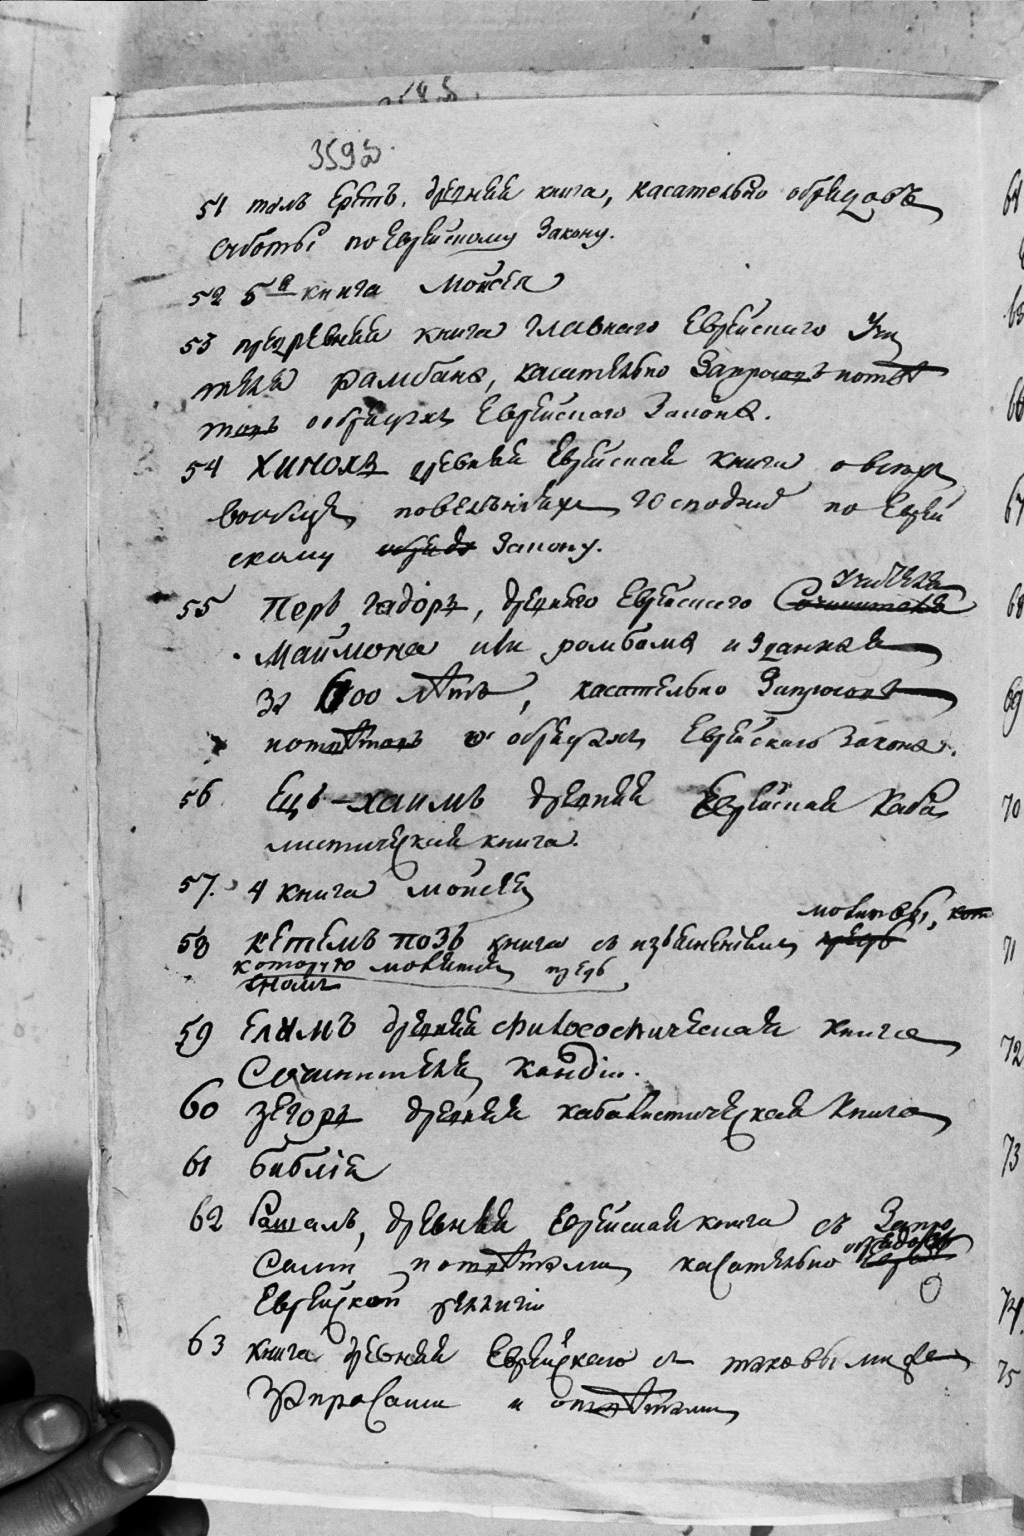 359 об
51 талъ Еретъ, древняя книга, касательно обрядовъ
суботы по Еврейскому Закону.
52 5я книга Мойсея
53 предревняя книга главнаго Еврейскаго Учи
теля рамбана, касательно Запросовъ и отвѣ
товъ о обрядахъ Еврейскаго Закона.
54 Хинохъ древняя Еврейская книга о встрѣ
повеленіяхъ Господня по Еврей
скому обряду Закону.
55 Перъ гадоръ, древняго Еврейскаго Сочинителя Учителя
Маймона или рамбама изданная
за 600 лѣтъ, касательно Запросовъ
и отвѣтовъ о обрядахъ Еврейскаго Закона.
56 Ецъ-хаимъ древняя Еврейская Каба
листическая книга.
57. 4 книга мойсея
молитвы, кот
58 кетемъ позъ книга съ изъясненіями предъ
которую молится предъ
59 Елимъ древняя философическая книга
Сочинителя Кандіи.
60 Зегоръ древняя кабалистическая Книга
61 библія
62 Рашалъ, древняя еврейская книга съ Запро
обрядовъ
сами и отвѣтами касательно
Еврейской религіи
63 книга древняя Еврейскаго съ таковыми же
Запросами и отвѣтами
64
65
66
67
68
69
70
71
72
73
74
75